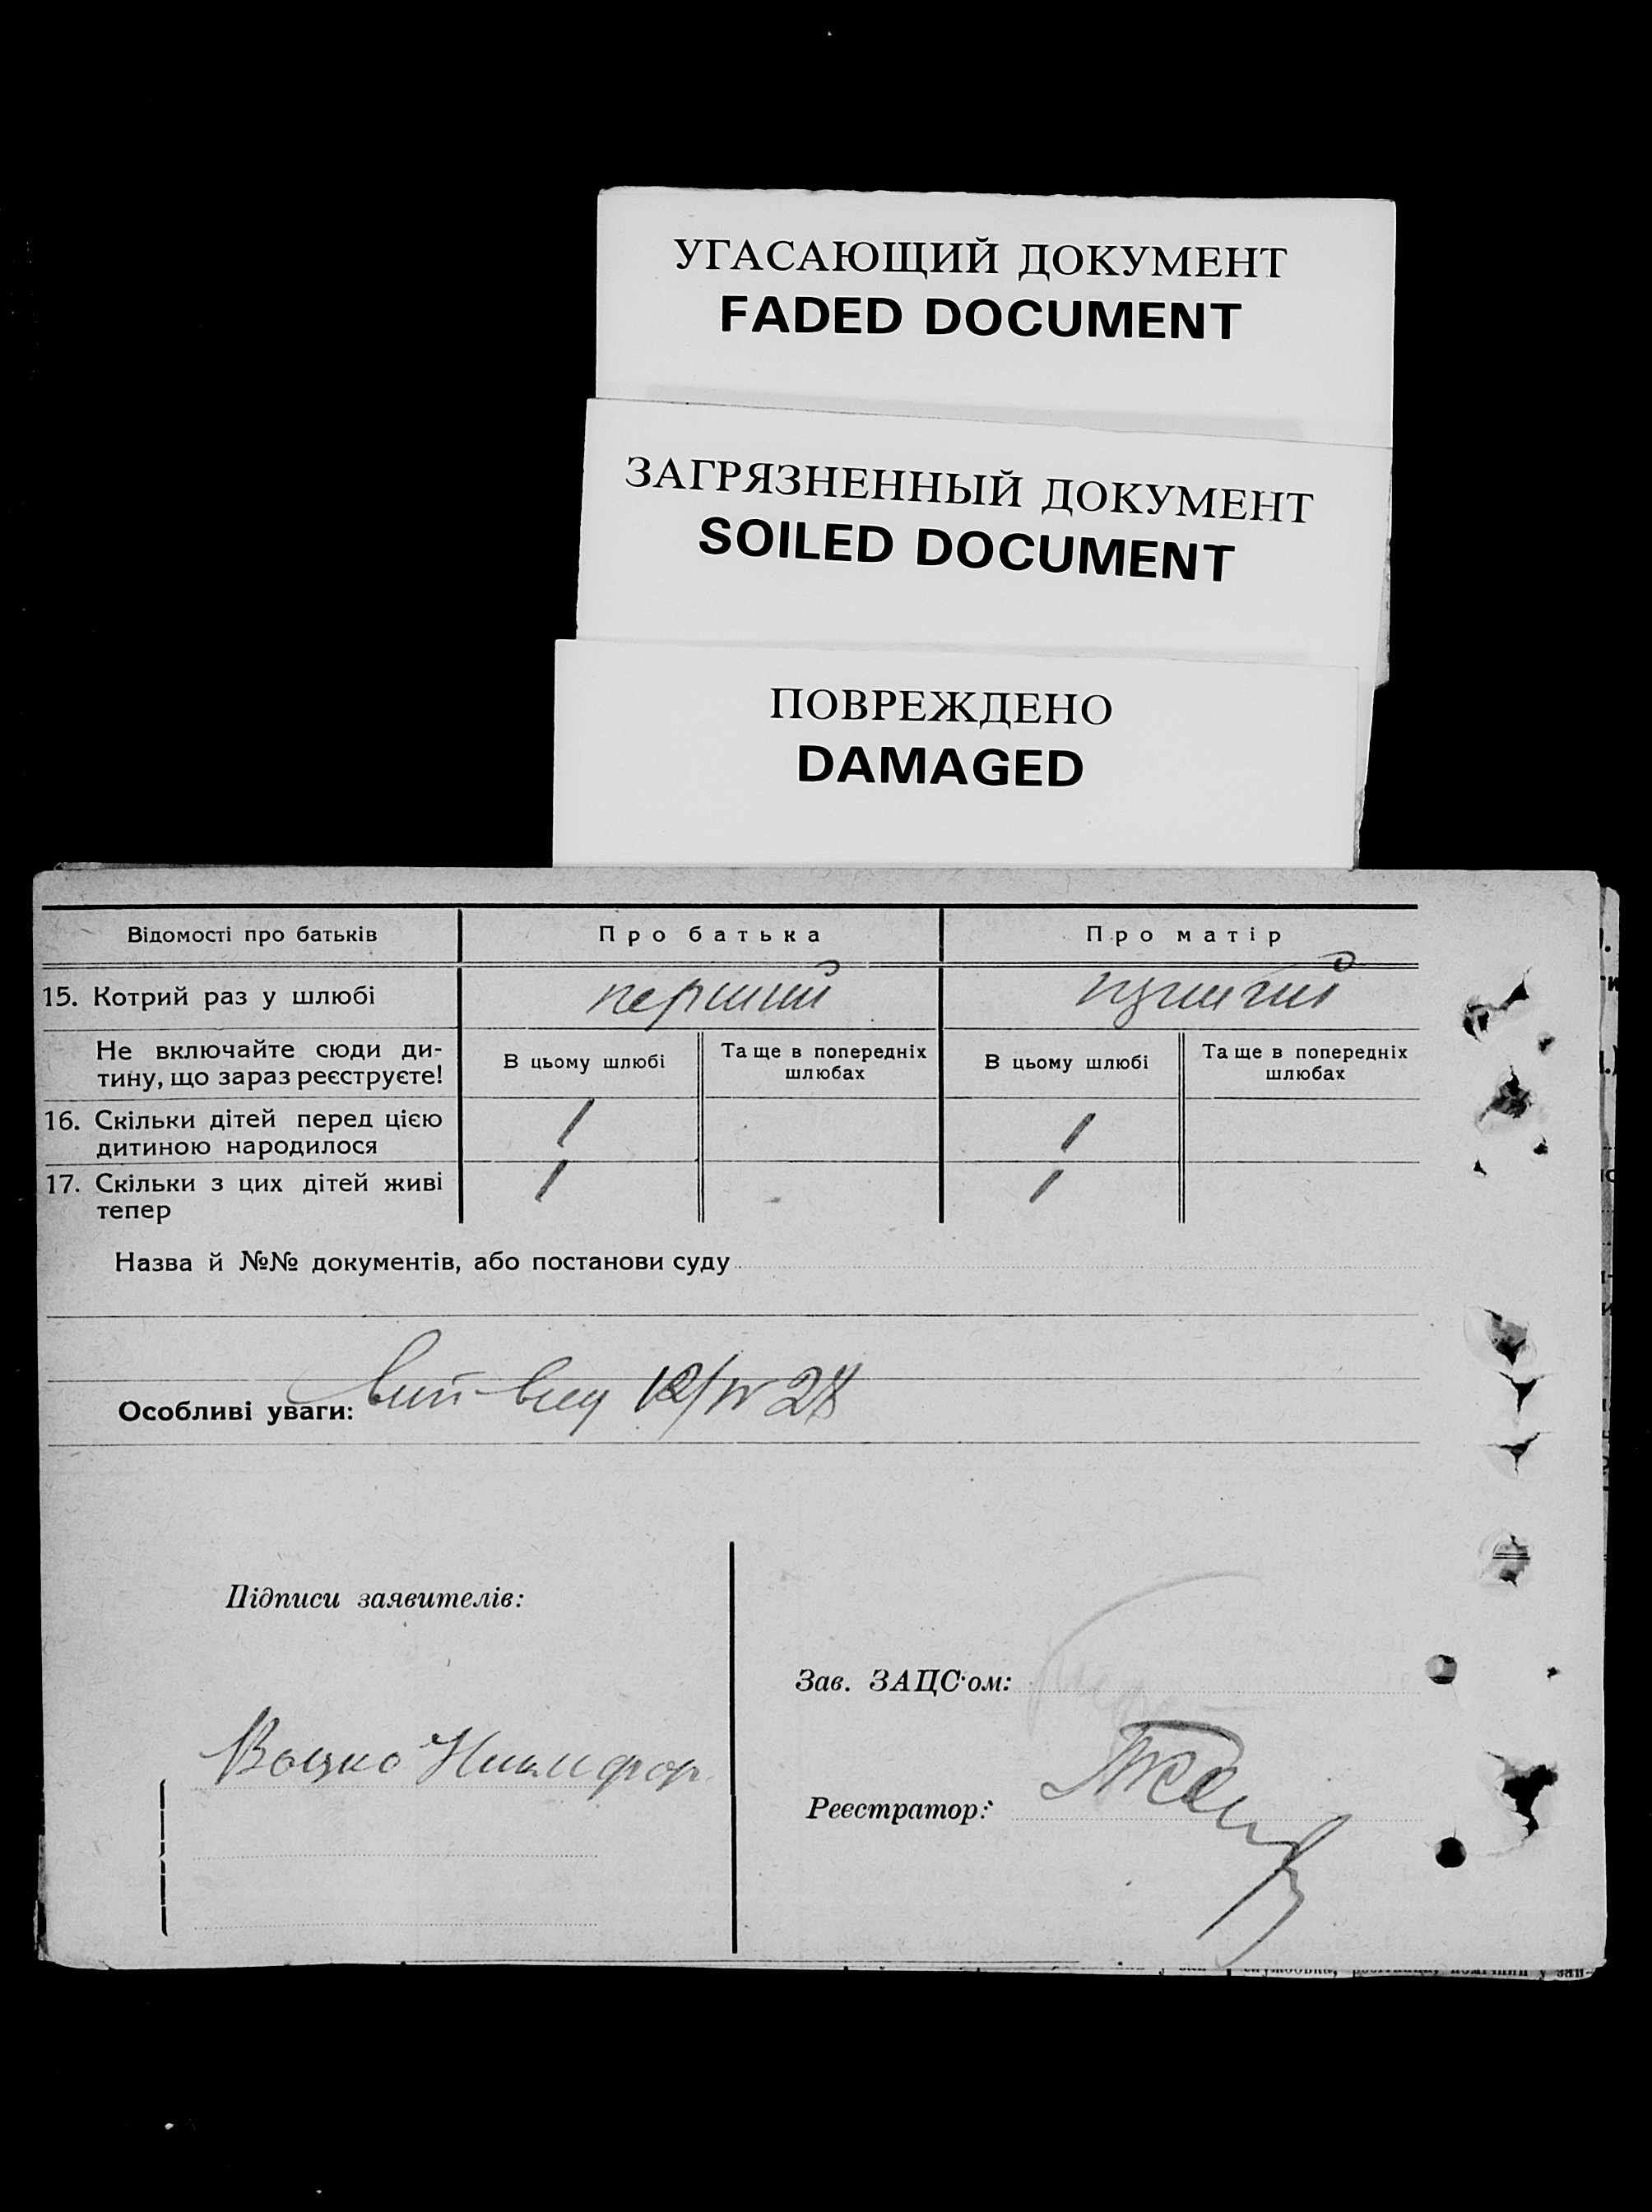 УГАСАЮЩИЙ ДОКУМЕНТ
FADED DOCUMENT
ЗАГРЯЗНЕННЫЙ ДОКУМЕНТ
SOILED DOCUMENT
ПОВРЕЖДЕНО
DAMAGED
Відомості про батьків
Про батька
Про матір
15. Котрий раз у шлюбі
перший
Не включайте сюди ди-
тину, що зараз реєструєте!
В цьому шлюбі
Та ще в попередніх
шлюбах
В цьому шлюбі
Та ще в попередніх
шлюбах
16. Скільки дітей перед цією
дитиною народилося
1
1
17. Скільки з цих дітей живі
тепер
1
1
Назва й №№ документів, або постанови суду
Особливі уваги:
12/IV 28
Підписи заявителів:
Зав. ЗАЦС'ом:
Никифор
Реєстратор: